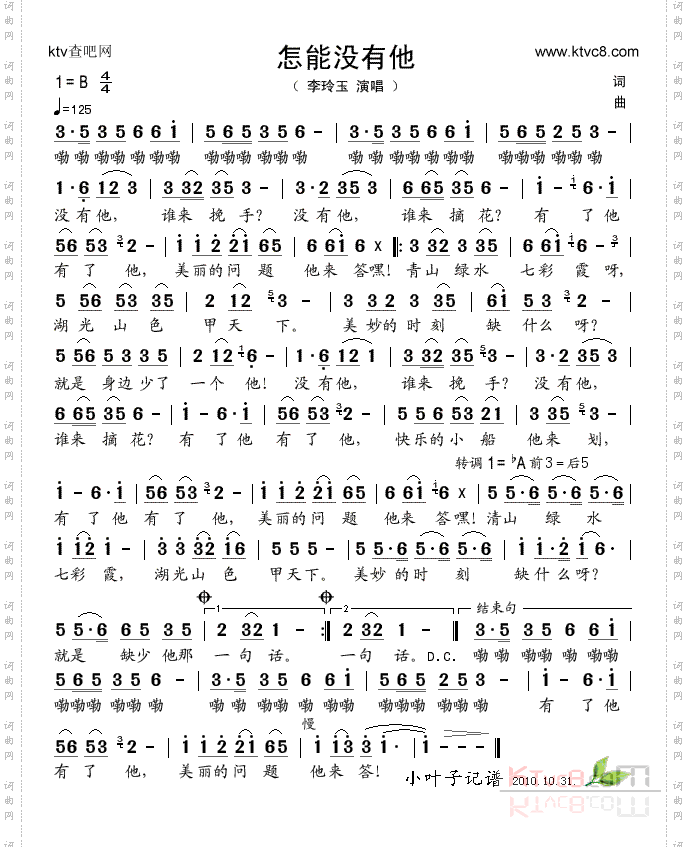 ktv查吧网
怎能没有他
www.ktvc8.com
1=B 4/4
( 李玲玉 演唱 )
词
曲
♩=125
3·5 3 5 6 6 i | 5 6 5 3 5 6 - | 3·5 3 5 6 6 i | 5 6 5 2 5 3 - |
嘞嘞嘞嘞嘞嘞 嘞嘞嘞嘞嘞嘞 嘞嘞嘞嘞嘞嘞 嘞嘞嘞嘞嘞嘞
1·6 12 3 | 3 32 35 3 - | 3·2 35 3 | 6 65 35 5 | i - i 6·i |
没有他, 谁来挽手? 没有他, 谁来摘花? 有了他
56 53 3 2 - | i i 2 2i 65 | 6 6i 6 x |: 3 3 32 35 | 6 6i i 6 - |
有了他, 美丽的问题 他来答嘿! 青山绿水 七彩霞呀,
5 56 53 35 | 2 12 5 3 - | 3 32 3 5 5 | 6i 5 5 - |
湖光山色 甲天下。 美妙的时刻 缺什么呀?
5 56 5 3 3 5 | 2 12 1 6 - | 1·6 12 3 | 3 32 35 5 3 - | 3·2 35 3 |
就是身边少了一个他! 没有他, 谁来挽手? 没有他,
6 65 35 5 | i - 6·i | 56 53 3 2 - | 5 5 6 53 21 | 3 35 5 - |
谁来摘花? 有了他有了他, 快乐的小船 他来划,
转调 1=♭A 前3=后5
i - 6·i | 56 53 3 2 - | i i 2 2i 65 | 6 6i i 6 x | 5 5·6 5·6 5·6 |
有了他有了他, 美丽的问题 他来答嘿! 清山绿水
i i2 i - | 3 3 32 i6 | 5 5 5 - | 5 5·6 5·6 5·6 | i 2 i 6· |
七彩霞, 湖光山色 甲天下。 美妙的时刻 缺什么呀?
1 2 结束句
5 5·6 65 35 | 2 32 1 - :| 2 32 1 - | 3·5 3 5 6 6 i |
就是缺少他那一句话。 一句话。D.C. 嘞嘞嘞嘞嘞嘞
5 6 5 3 5 6 - | 3·5 3 5 6 6 i | 5 6 5 2 5 3 - | i - 6·i |
嘞嘞嘞 嘞嘞嘞 嘞嘞嘞嘞嘞嘞 嘞嘞嘞 嘞嘞嘞 有了他
慢
56 53 3 2 - | i i 2 2i 65 | i i3 3 i· | i - |
有了他, 美丽的问题 他来答!
小叶子记谱 2010.10.31.
KTVC8.COM